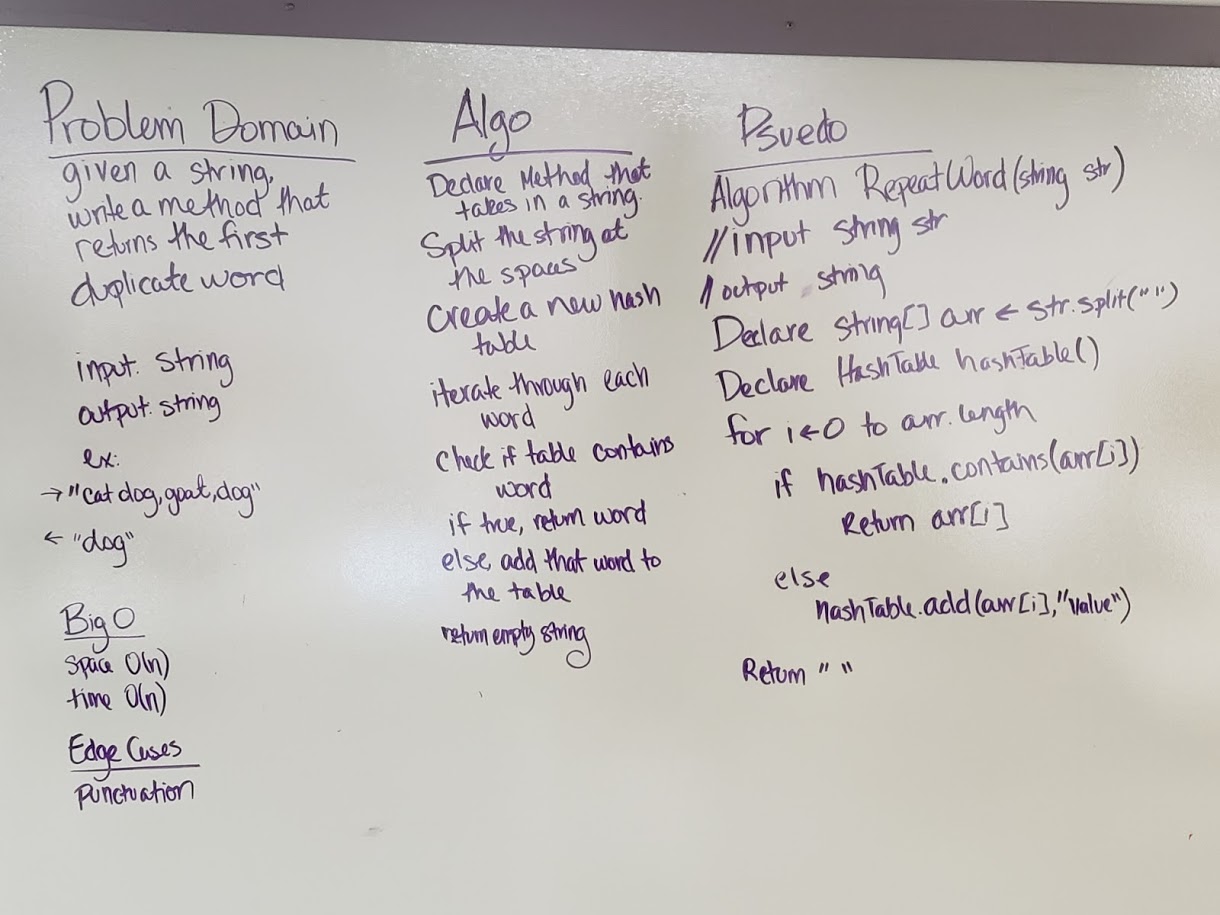 Problem Domain
given a string,
write a method that
returns the first
duplicate word
input: string
output: string
ex:
→ "cat dog, goat, dog"
← "dog"
Big O
Space O(n)
time O(n)
Edge Cases
Punctuation
Algo
Declare Method that
takes in a string.
Split the string at
the spaces
Create a new hash
table
iterate through each
word
Check if table contains
word
if true, return word
else, add that word to
the table
return empty string
Psuedo
Algorithm RepeatWord(string str)
//input string str
//output string
Declare string[] arr ← str.split(" ")
Declare HashTable hashTable()
for i ← 0 to arr.length
if hashTable.contains(arr[i])
Return arr[i]
else
hashTable.add(arr[i],"value")
Return " "